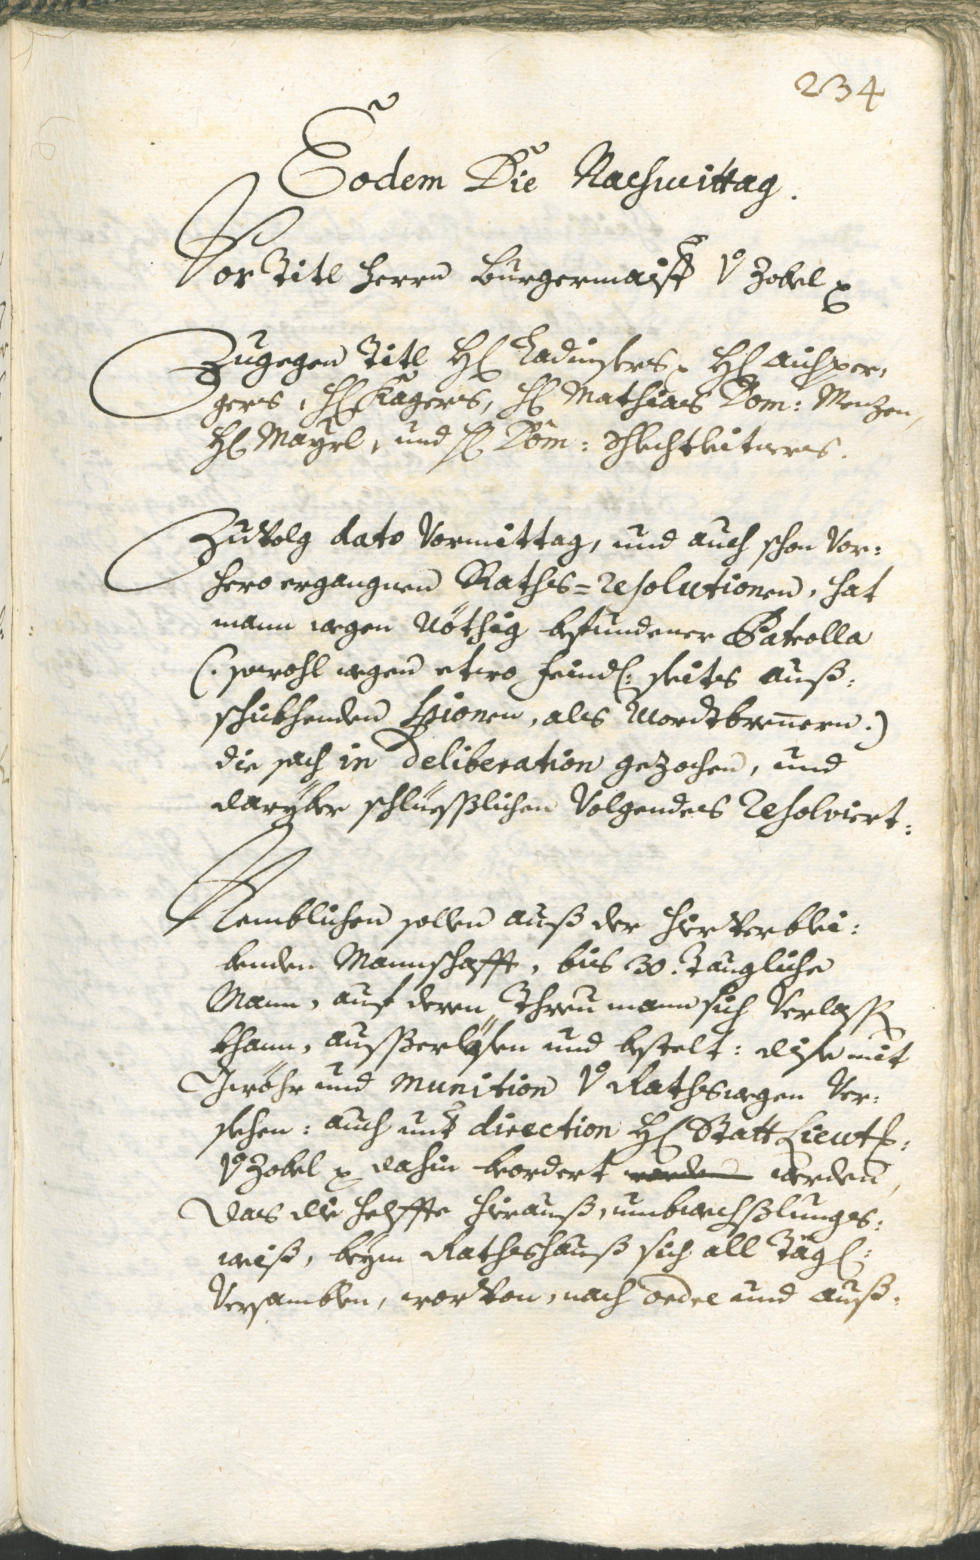 234
Eodem Die Nachmittag.
Vor Titl Herrn Burgermaistr v Zobel
Zugegen Titl H: Ladurners, H: Aichper,
gers, H: Kagers, H: Mathias Dom: Menzen,
H: Mayrl, und H: Dom: Schlechtleitners.
Zuvolg dato Vormittag, und auch schon Vor:
hero ergangnen Raths=resolutionen, hat
mann wegen Nöthig befundener Patrolla
(: sowohl wegen etwo feindl: seits auß:
schickhenden Spionen, als Mordtbrenern :)
die sach in deliberation gezochen, und
darüber schlüesslichen Volgendes Resolviert:
Nemblichen sollen auß der hier verblei:
benden Mannschafft, bis 30. Taugliche
Mann, auf deren Threu mann sich Verlassen
khann, ausßerlesen und bestelt: dise mit
Gwöhr und Munition v Rathswegen Ver:
sehen: auch unter direction H: Statt Lieut:
v Zobel dahin beordert werden,
Das die helffte hieraus, umbwechßlungs:
weiß, beym Rathshauß sich all Tägl:
Versamblen, worvon, nach Order und auß: